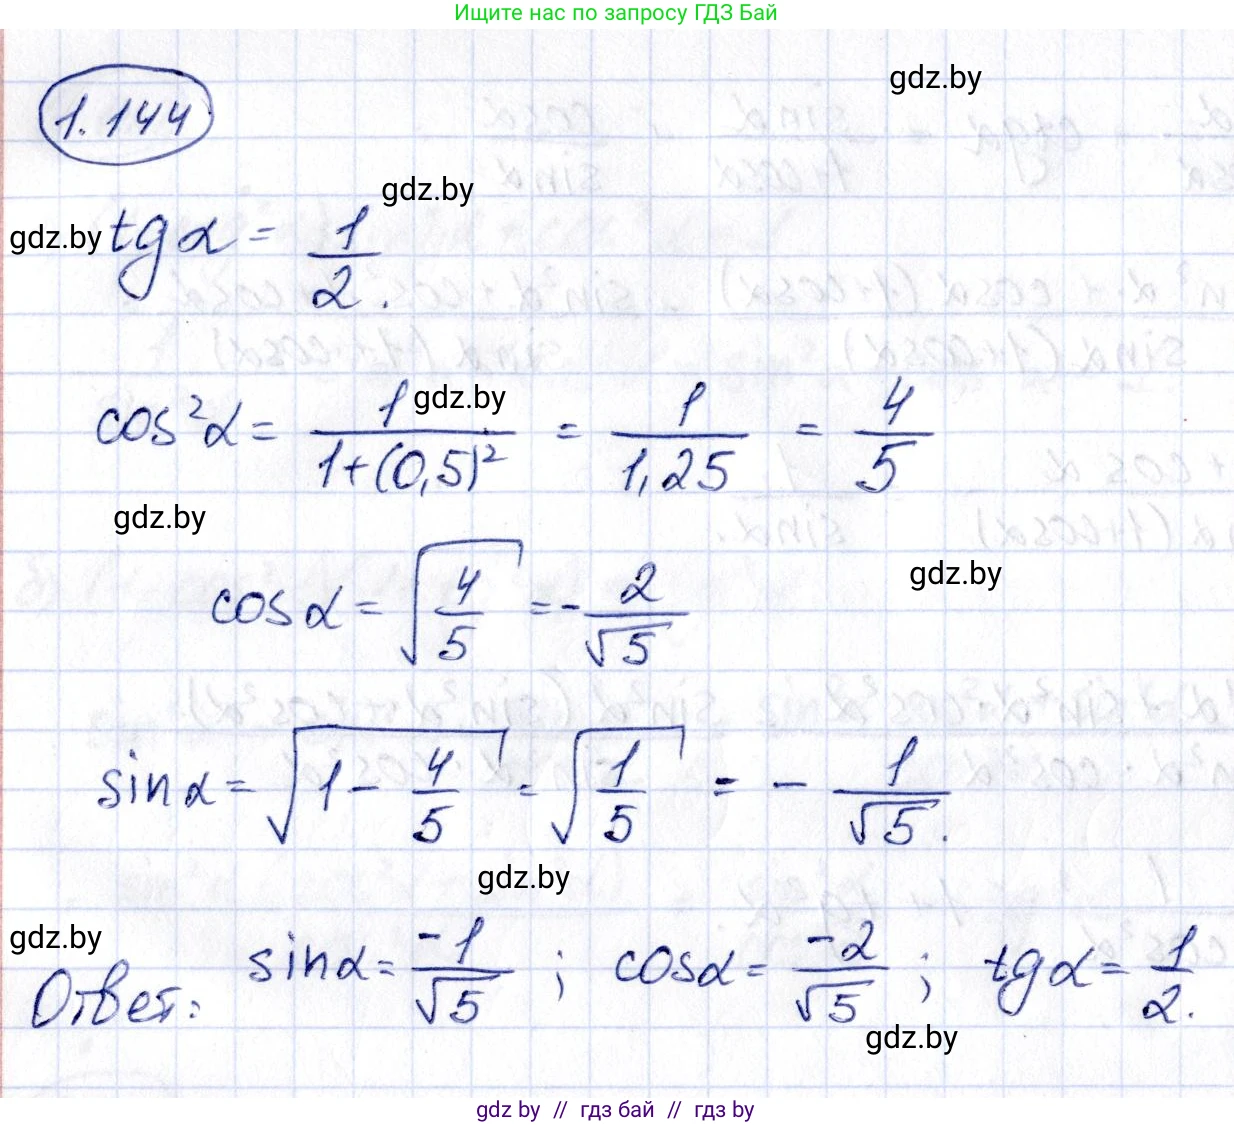 Ищите нас по запросу ГДЗ Бай
gdz.by
1.144
gdz.by
gdz.by tgα = 1/2.
cos²α = 1/(1+(0,5)²) = 1/1,25 = 4/5
gdz.by
gdz.by
gdz.by
cosα = √(4/5) = -2/√5
sinα = √(1 - 4/5) = √(1/5) = - 1/√5.
gdz.by
gdz.by
Ответ: sinα = -1/√5 ; cosα = -2/√5 ; tgα = 1/2.
gdz.by
gdz by // гдз бай // гдз by